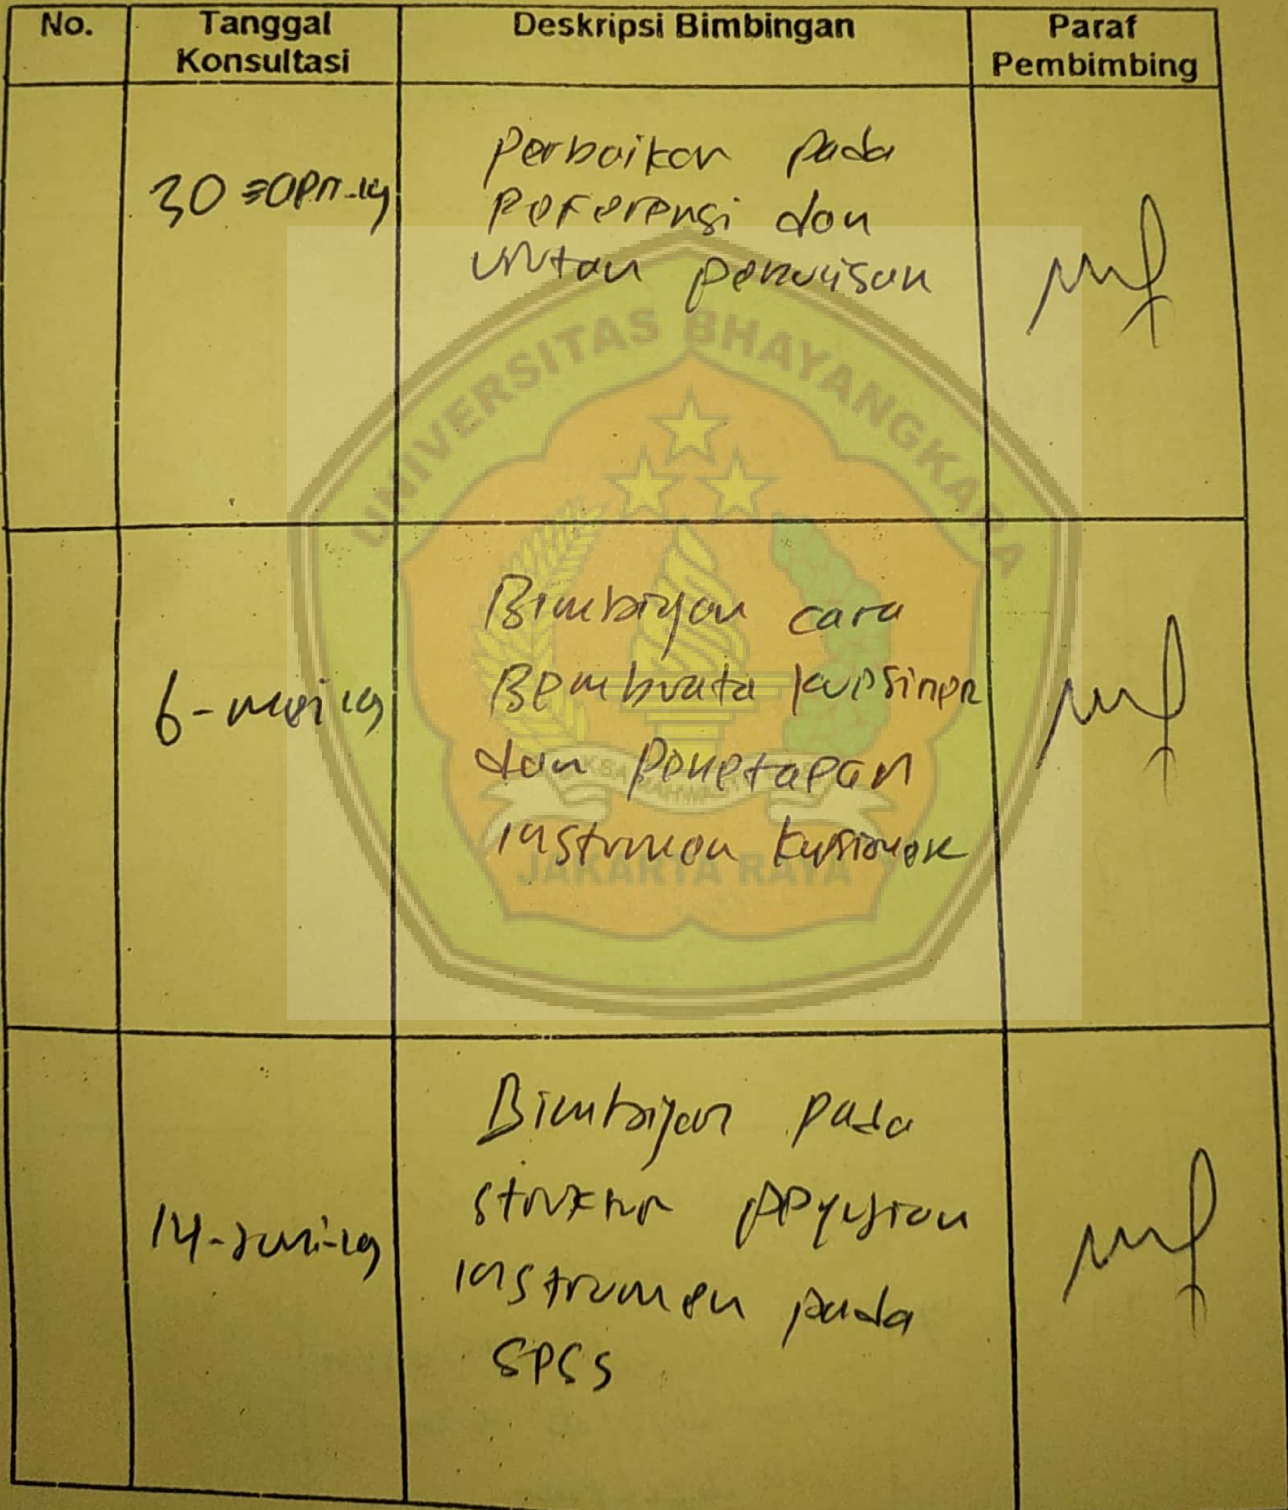 No.
Tanggal
Konsultasi
Deskripsi Bimbingan
Paraf
Pembimbing
30 = Apri-19
Perbaikan pada
Referensi dan
urutan penulisan
6-mei 19
Bimbingan cara
kuesioner
dan penetapan
instrumen kuesioner
14-Juni-19
Bimbingan pada
struktur
instrumen pada
SPSS
UNIVERSITAS BHAYANGKARA
JAKARTA RAYA